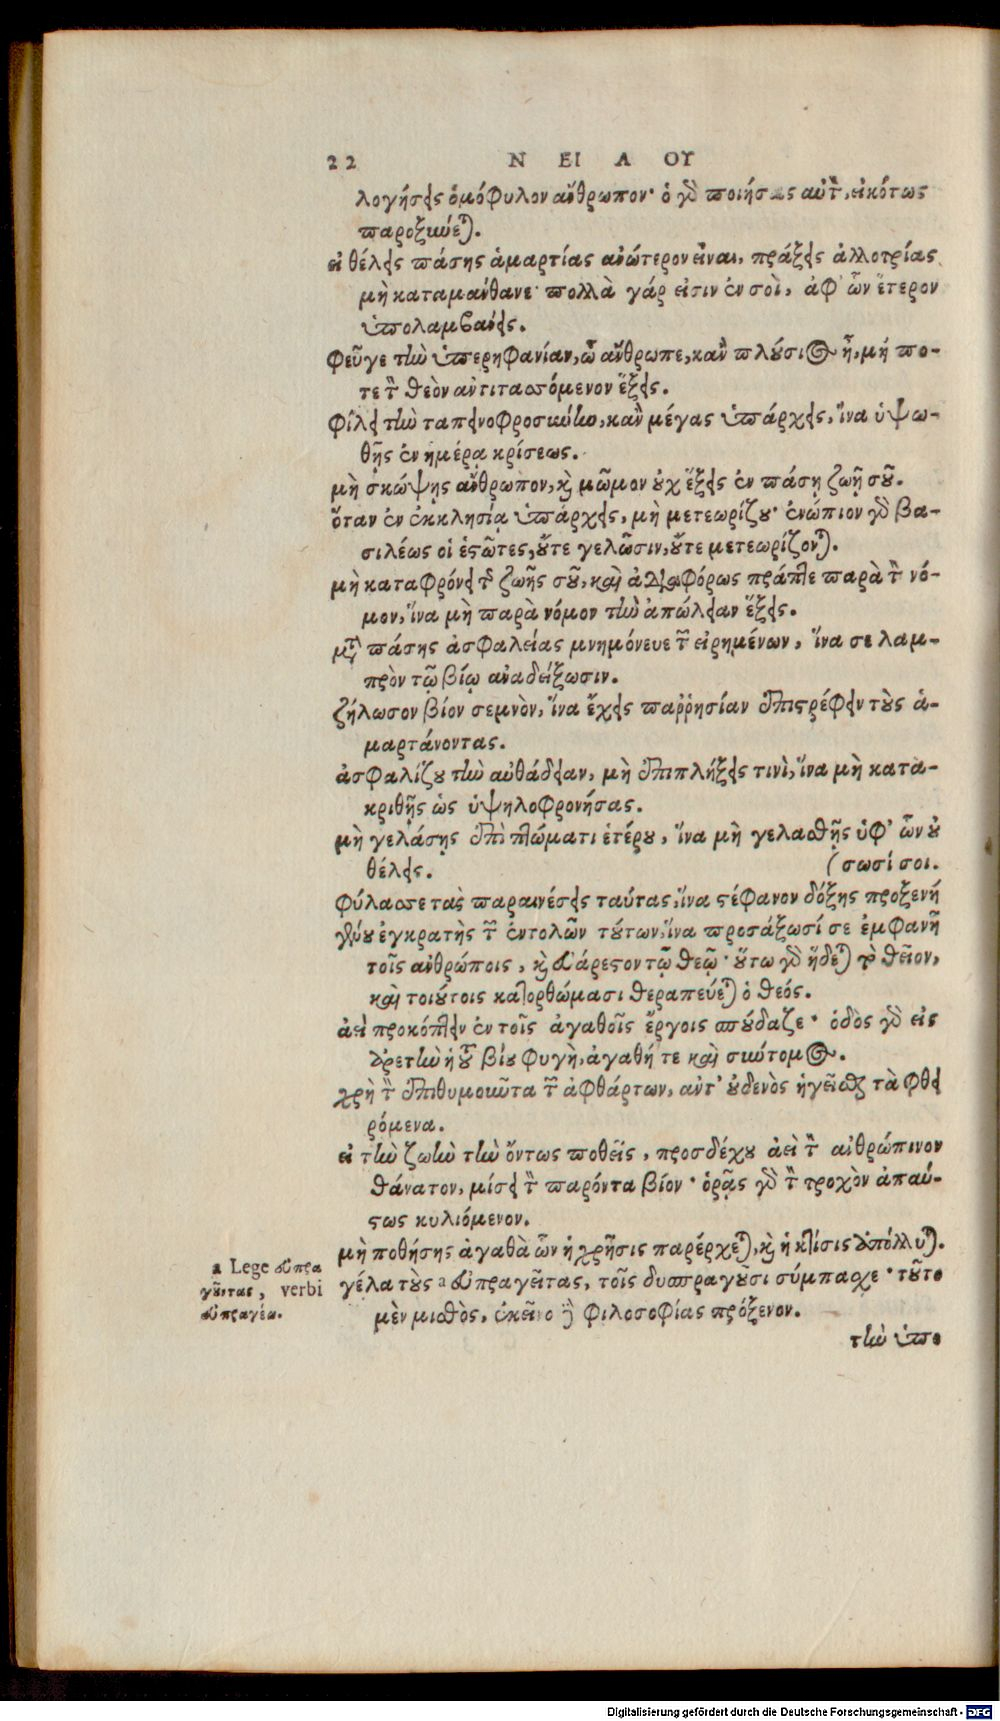 22 ΝΕΙΛΟΥ
λογήσεις ὁμόφυλον ἄνθρωπον· ὁ γὰρ ποιήσας αὐτὸν, εἰκότως
παροξυνεται.
εἰ θέλεις πάσης ἁμαρτίας ἀνώτερον εἶναι, πράξεις ἀλλοτρίας
μὴ καταμάνθανε· πολλὰ γάρ εἰσιν ἐν σοὶ, ἀφ' ὧν ἕτερον
ὑπολαμβάνεις.
φεῦγε τὴν ὑπερηφανίαν, ὦ ἄνθρωπε, κἂν πλούσιος ᾖ, μή πο-
τε τὸν θεὸν ἀντιτασσόμενον ἕξεις.
φίλει τὴν ταπεινοφροσύνην, κἂν μέγας ὑπάρχεις, ἵνα ὑψω-
θῇς ἐν ἡμέρᾳ κρίσεως.
μὴ σκώψῃς ἄνθρωπον, καὶ μῶμον οὐχ ἕξεις ἐν πάσῃ ζωῇ σοῦ.
ὅταν ἐν ἐκκλησίᾳ ὑπάρχεις, μὴ μετεωρίζου· ἐνώπιον γὰρ βα-
σιλέως οἱ ἑστῶτες, οὔτε γελῶσιν, οὔτε μετεωρίζονται.
μὴ καταφρόνει τῆς ζωῆς σοῦ, καὶ ἀδιαφόρως πράττε παρὰ τὸν νό-
μον, ἵνα μὴ παρὰ νόμον τὴν ἀπώλειαν ἕξεις.
μετὰ πάσης ἀσφαλείας μνημόνευε τῶν εἰρημένων, ἵνα σε λαμ-
πρὸν τῷ βίῳ ἀναδείξωσιν.
ζήλωσον βίον σεμνὸν, ἵνα ἔχεις παῤῥησίαν ἐπιστρέφειν τοὺς ἁ-
μαρτάνοντας.
ἀσφαλίζου τὴν αὐθάδειαν, μὴ ἐπιπλήξεις τινὶ, ἵνα μὴ κατα-
κριθῇς ὡς ὑψηλοφρονήσας.
μὴ γελάσῃς ἐπὶ πτώματι ἑτέρου, ἵνα μὴ γελασθῇς ὑφ' ὧν οὐ
θέλεις. (σωσί σοι.
φύλασσε τὰς παραινέσεις ταύτας, ἵνα στέφανον δόξης προξενή
γίνου ἐγκρατὴς τῶν ἐντολῶν τούτων, ἵνα προσάξωσί σε ἐμφανῆ
τοῖς ἀνθρώποις, καὶ εὐάρεστον τῷ θεῷ· οὕτω γὰρ ἥδεται τὸ θεῖον,
καὶ τοιούτοις κατορθώμασι θεραπεύεται ὁ θεός.
ἀεὶ προκόπτειν ἐν τοῖς ἀγαθοῖς ἔργοις σπούδαζε· ὁδὸς γὰρ εἰς
ἀρετὴν ἡ τοῦ βίου φυγὴ, ἀγαθή τε καὶ σύντομος.
χρὴ τὸν ἐπιθυμοῦντα τῶν ἀφθάρτων, ἀντ' οὐδενὸς ἡγεῖσθαι τὰ φθει
ρόμενα.
εἰ τὴν ζωὴν τὴν ὄντως ποθεῖς, προσδέχου ἀεὶ τὸν ἀνθρώπινον
θάνατον, μίσει τὸν παρόντα βίον· ὁρᾷς γὰρ τὸν τροχὸν ἀπαύ-
στως κυλιόμενον.
μὴ ποθήσῃς ἀγαθὰ ὧν ἡ χρῆσις παρέρχεται, καὶ ἡ κτίσις ἀπόλλυται.
γέλα τοὺς a εὐπραγεῖτας, τοῖς δυσπραγοῦσι σύμπασχε· τοῦτο
μὲν μισθὸς, ἐκεῖνο δὲ φιλοσοφίας πρόξενον.
τὴν ὑπο
a Lege εὐπρα
γοῦντας, verbi
εὐπραγέω.
Digitalisierung gefördert durch die Deutsche Forschungsgemeinschaft - DFG